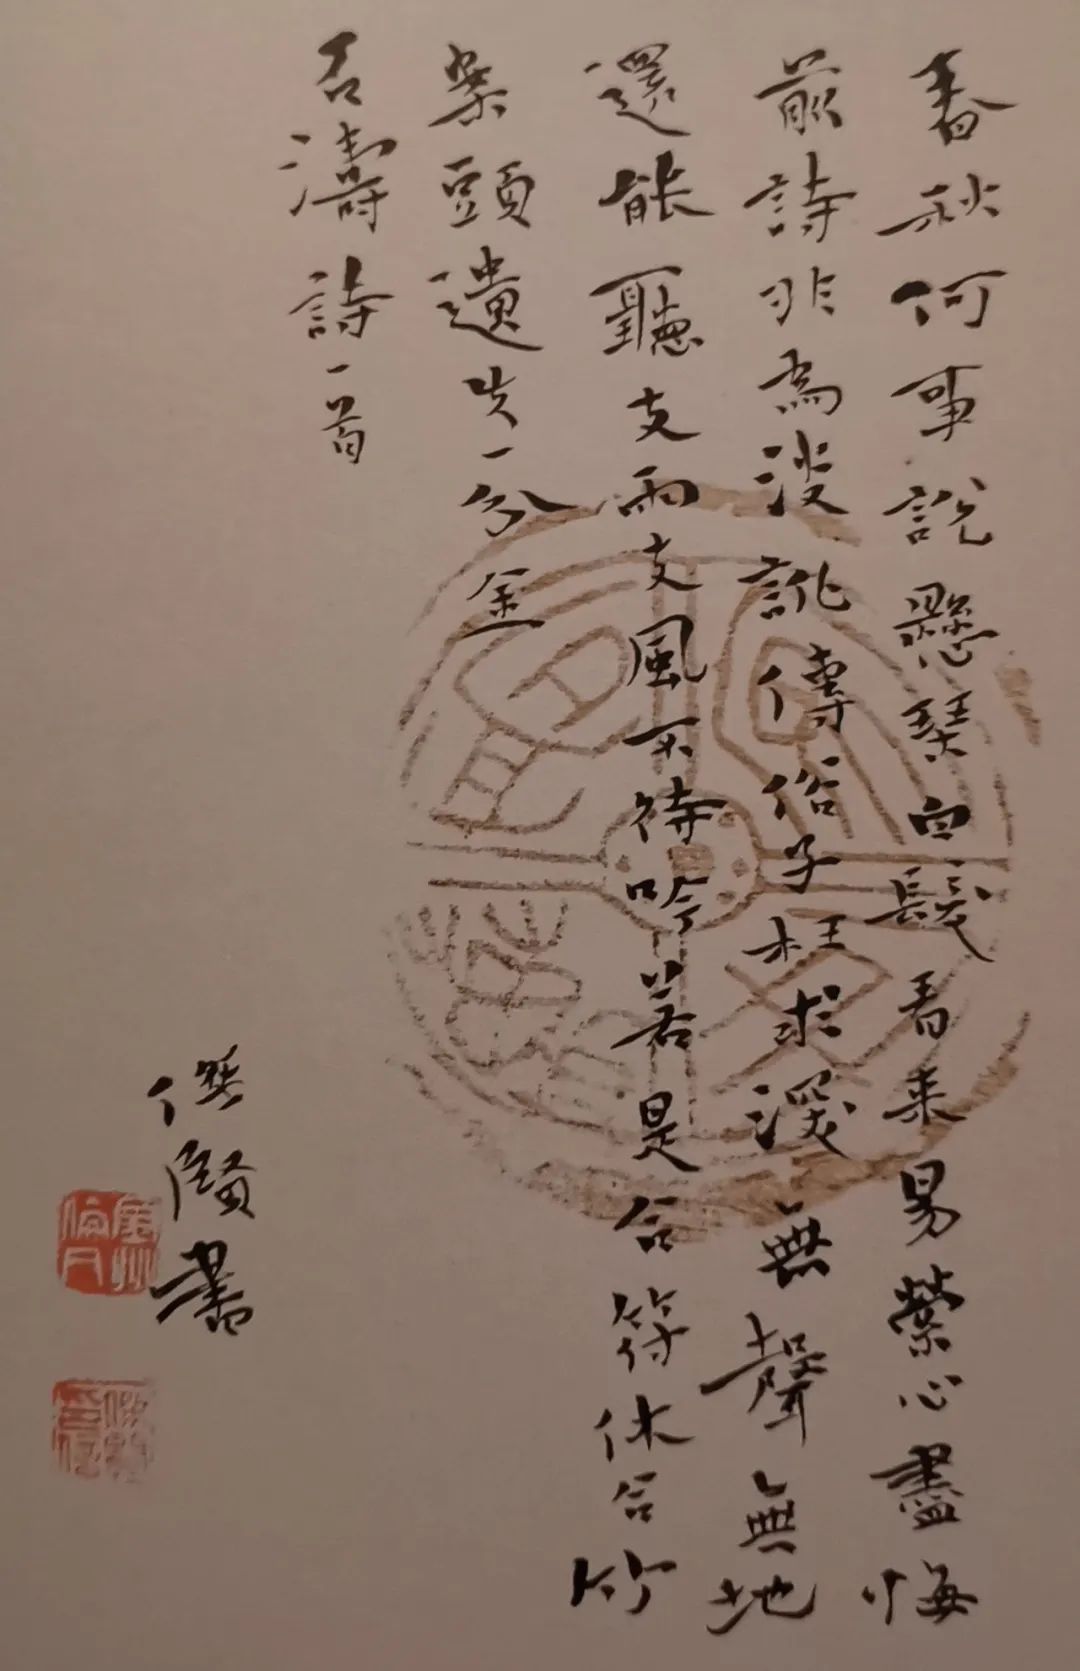 春秋何事說懸琴白髮看来易縈心盡悔
前詩非為淡訛傳俗子枉求深無聲無地
還能聽支雨支風不待吟若是合符休合竹
案頭遺失一分金
石濤詩一首
賢書